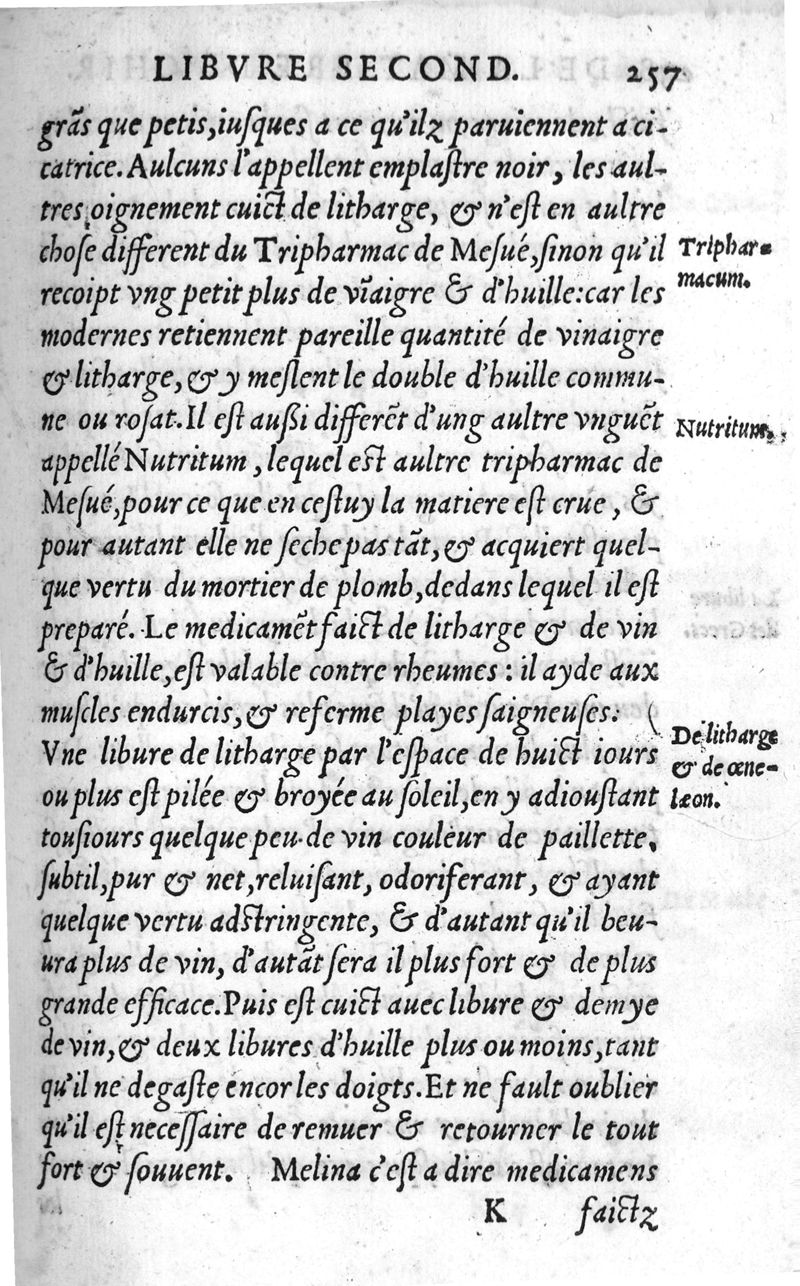 LIBVRE SECOND. 257
grãs que petis, iuſques a ce qu'ilz paruiennent a ci-
catrice. Aulcuns l'appellent emplaſtre noir, les aul-
tres oignement cuict de litharge, & n'eſt en aultre
choſe different du Tripharmac de Meſué, ſinon qu'il
Triphar-
macum.
recoipt vng petit plus de vĩaigre & d'huille: car les
modernes retiennent pareille quantité de vinaigre
& litharge, & y meſlent le double d'huille commu-
ne ou roſat. Il eſt auſſi differẽt d'ung aultre vnguẽt
Nutritum.
appellé Nutritum, lequel eſt aultre tripharmac de
Meſué, pour ce que en ceſtuy la matiere eſt crue, &
pour autant elle ne ſeche pas tãt, & acquiert quel-
que vertu du mortier de plomb, dedans lequel il eſt
preparé. Le medicamẽt faict de litharge & de vin
& d'huille, eſt valable contre rheumes: il ayde aux
muſcles endurcis, & referme playes ſaigneuſes: (
De litharge
& de œne-
læon.
Vne libure de litharge par l'eſpace de huict iours
ou plus eſt pilée & broyée au ſoleil, en y adiouſtant
touſiours quelque peu de vin couleur de paillette,
ſubtil, pur & net, reluiſant, odoriferant, & ayant
quelque vertu adſtringente, & d'autant qu'il beu-
ura plus de vin, d'autãt ſera il plus fort & de plus
grande efficace. Puis eſt cuict auec libure & demye
de vin, & deux libures d'huille plus ou moins, tant
qu'il ne degaſte encor les doigts. Et ne fault oublier
qu'il eſt neceſſaire de remuer & retourner le tout
fort & ſouuent. Melina c'eſt a dire medicamens
K faictz